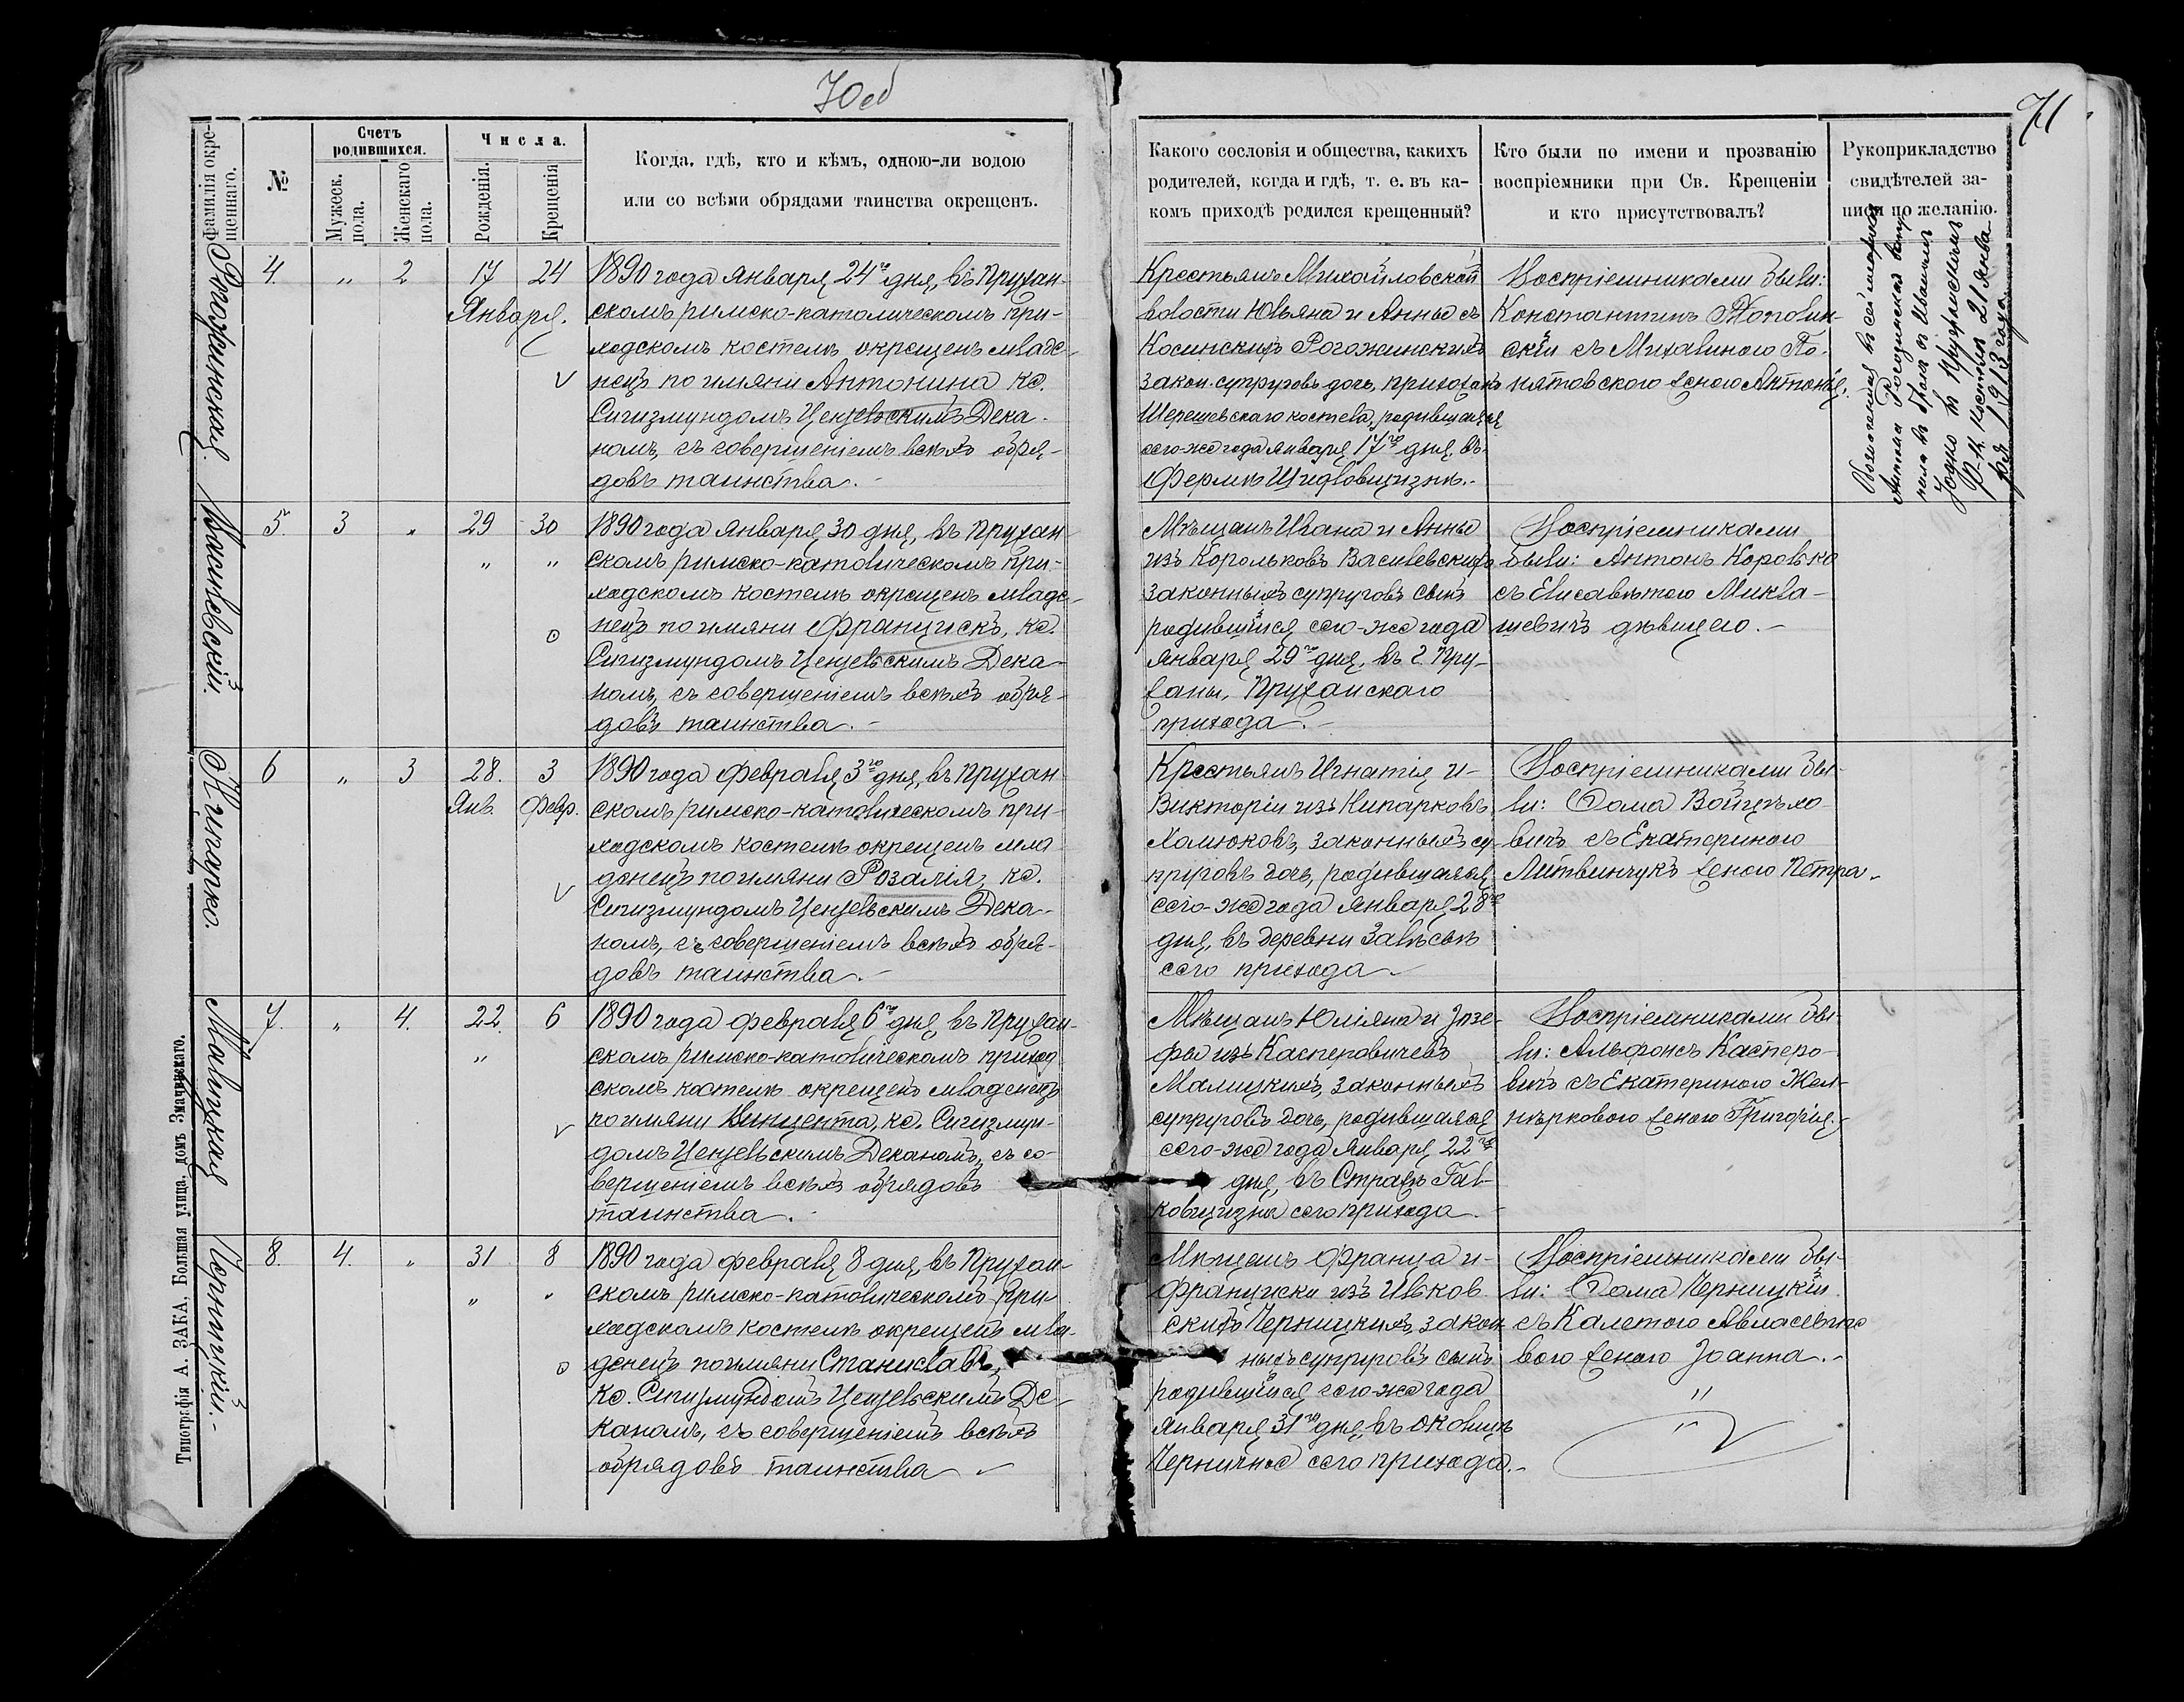 70 об
71
Фамилія окре-
щеннаго.
№
Счетъ
родившихся.
Мужеск.
пола.
Женскаго
пола.
Числа.
Рожденія.
Крещенія
Когда, гдѣ, кто и кѣмъ, одною-ли водою
или со всѣми обрядами таинства окрещенъ.
Какого сословія и общества, какихъ
родителей, когда и гдѣ, т. е. въ ка-
комъ приходѣ родился крещенный?
Кто были по имени и прозванію
воспріемники при Св. Крещеніи
и кто присутствовалъ?
Рукоприкладство
свидѣтелей за-
писи по желанію.
Рогожинская
4. „ 2 17 24
Января.
1890 года Января 24го дня, въ Пружан-
скомъ римско-католическомъ при-
ходскомъ костелѣ окрещенъ младе-
нецъ по имяни Антонина кс.
Сигизмундомъ Цензевскимъ Дека-
номъ, съ совершеніемъ всѣхъ обря-
довъ таинства.
Крестьянъ Михайловской
волости Юльяна и Анны съ
Косинскихъ Рогожинскихъ
закон. супруговъ дочь, прихожанъ
Шерешевскаго костела, родившаяся
сего-же года января 17го дня, въ
Фермѣ Шидловщизнѣ.
Воспріемниками были:
Константинъ Жоповин-
скій съ Михалиною По-
нятовского женою Антонія.
въ Пружанскомъ
Р.-К. костелѣ 21 янва-
ря 1913 года
Василевскій.
5. 3 „ 29 30
„ „
1890 года Января 30 дня, въ Пружан-
скомъ римско-католическомъ при-
ходскомъ костелѣ окрещенъ младе-
нецъ по имяни Францискъ, кс.
Сигизмундомъ Цензевскимъ Дека-
номъ, съ совершеніемъ всѣхъ обря-
довъ таинства.
Мѣщанъ Ивана и Анны
изъ Корольковъ Василевскихъ
законныхъ супруговъ сынъ
родившійся сего-же года
Января 29го дня, въ г. Пру-
жаны, Пружанскаго
прихода.
Воспріемниками
были: Антонъ Коровко
съ Елисаветою Микла-
шевичъ дѣвицею.
Кипарко.
6 „ 3 28. 3
Янв. Февр.
1890 года Февраля 3го дня, въ Пружан-
скомъ римско-католическомъ при-
ходскомъ костелѣ окрещенъ мла-
денецъ по имяни Розалія, кс.
Сигизмундомъ Цензевскимъ Дека-
номъ, съ совершеніемъ всѣхъ обря-
довъ таинства.
Крестьянъ Игнатія и
Викторіи изъ Кипарковъ
Хомюковъ, законныхъ су-
пруговъ дочь, родившаяся
сего-же года Января 28го
дня, въ деревни
сего прихода
Воспріемниками бы-
ли: Фома Войцѣхо-
вичъ съ Екатериною
Литвинчукъ женою Петра.
Малицкая
7. „ 4. 22. 6
„
1890 года Февраля 6го дня, въ Пружан-
скомъ римско-католическомъ приход-
скомъ костелѣ окрещенъ младенецъ
по имяни Винцента, кс. Сигизмун-
домъ Цензевскимъ Деканомъ, съ со-
вершеніемъ всѣхъ обрядовъ
таинства.
Мѣщанъ Юліяна и Јозе-
фы изъ Касперовичевъ
Малицкихъ, законныхъ
супруговъ дочь, родившаяся
сего-же года Января 22го
дня, въ Стражѣ Гал-
ковщизна сего прихода.
Воспріемниками бы-
ли: Альфонсъ Касперо-
вичъ съ Екатериною Жел-
нѣрковою женою Григорія.
Черницкій.
8. 4. „ 31 8
„ „
1890 года Февраля 8 дня, въ Пружан-
скомъ римско-католическомъ при-
ходскомъ костелѣ окрещенъ мла-
денецъ по имяни Станиславъ,
кс. Сигизмундомъ Цензевскимъ Де-
каномъ, съ совершеніемъ всѣхъ
обрядовъ таинства
Мѣщанъ Франца и
Франциски изъ Ивков-
скихъ Черницкихъ, закон-
ныхъ супруговъ сынъ
родившійся сего-же года
Января 31го дня, въ околицѣ
Чернична сего прихода.
Воспріемниками бы-
ли: Фома Черницкій
съ Калетою
женою Јоанна.
„
„
Типографія А. ЗАКА, Большая улица, домъ Змачинскаго.